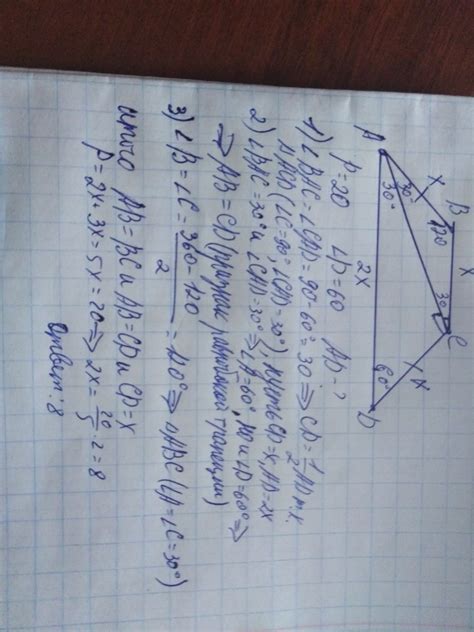 B
x
x
120
30°
C
A
30°
30°
x
2x
60°
D
P=20 ∠D=60 AD-?
1) ∠BAC=∠CAD=90-60°=30 ⇒ CD=1/2 AD т.к.
ΔACD (∠C=90°, ∠CAD=30°), пусть CD=x, AD=2x
2) ∠BAC=30° и ∠CAD=30° ⇒ ∠A=60°, но и ∠D=60° ⇒
⇒ AB=CD (признак равнобокой трапеции)
3) ∠B=∠C= 360-120 / 2 =120° ⇒ ΔABC (∠A=∠C=30°)
итого AB=BC и AB=CD и CD=x
P=2x+3x=5x=20 ⇒ 2x= 20/5 ·2=8
Ответ: 8